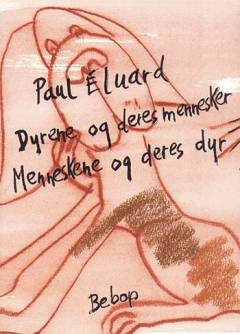 Paul Éluard
Dyrene og deres mennesker
Menneskene og deres dyr
Bebop